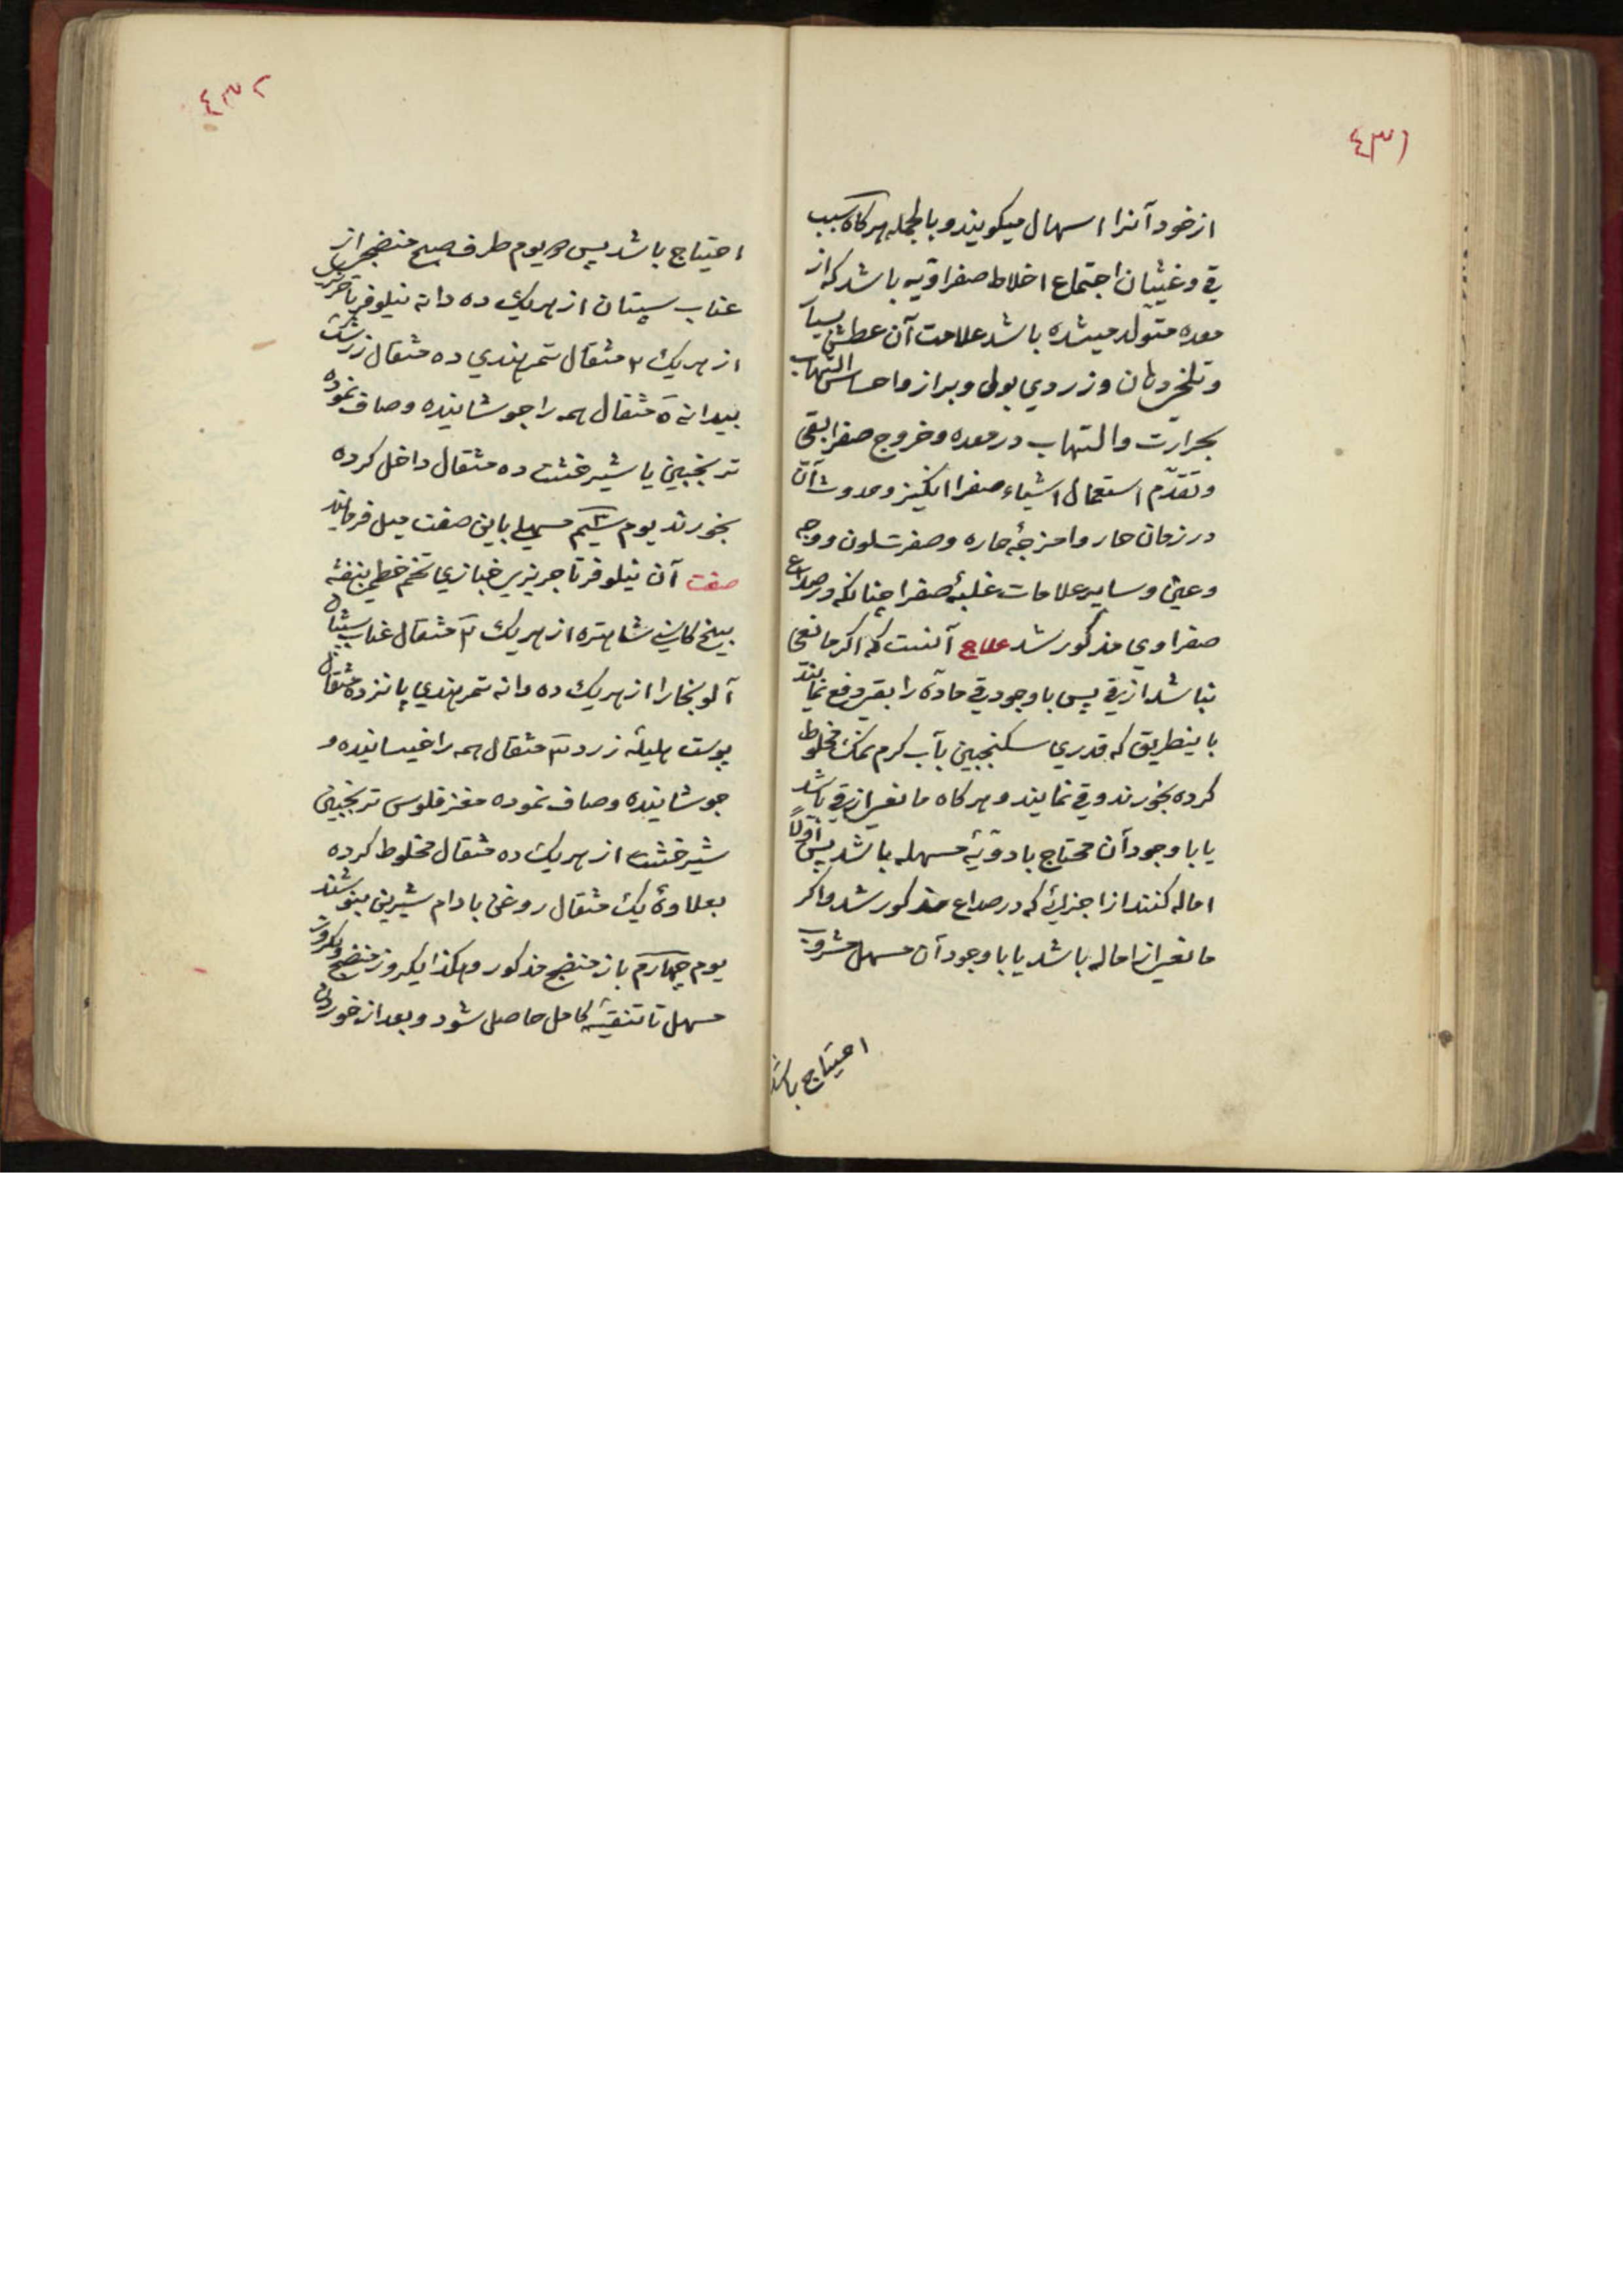 ٤٣١
از خود آنرا اسهال میکویند و بالجمله هرکاه سبب
قی و غثیان اجتماع اخلاط صفراویه باشد که از
معده متولد میشده باشد علامت آن عطش بسیار
و تلخی دهان و زردی بول و براز و احساس التهاب
بحرارت و التهاب در معده و خروج صفرا بقی
و تقدّم استعمال اشیاء صفرا انکیز و حدوث آن
در زمان حار و امزجهٔ حاره و صفرت لون و وجه
و عین و سایر علامات غلبهٔ صفرا چنانکه در صداع
صفراوی مذکور شد علاج آنست که اکر مانعی
نباشد از قی پس با وجود قی مادّه را بقی دفع نمایند
باینطریق که قدری سکنجبین بآب کرم نمک مخلوط
کرده بخورند و قی نمایند و هرکاه مانعی از قی باشد
یا با وجود آن محتاج بادویهٔ مسهله باشد پس اوّلاً
اماله کنند از اجزائی که در صداع مذکور شد و اکر
مانعی از اماله باشد یا با وجود آن مسهل مشروب
احتیاج باشد
٤٣٢
احتیاج باشد پس دو یوم طرف صبح منضجی از
عناب سپستان از هریك ده دانه نیلوفر تاجریزی
از هریك ٢ مثقال تمرهندی ده مثقال زرشک
بیدانه ٥ مثقال همه را جوشانیده و صاف نموده
ترنجبین یا شیرخشت ده مثقال داخل کرده
بخورند یوم سیّم مسهلی باین صفت میل فرمایند
صفت آن نیلوفر تاجریزی خبازی تخم خطمی بنفشه
بیخ کاسنی شاهتره از هریك ٢ مثقال عناب سپستان
آلوبخارا از هریك ده دانه تمرهندی پانزده مثقال
پوست هلیله زرد ٣ مثقال همه را خیسانیده و
جوشانیده و صاف نموده مغز فلوس ترنجبین
شیرخشت از هریك ده مثقال مخلوط کرده
بعلاوهٔ یك مثقال روغن بادام شیرین بنوشند
یوم چهارم باز منضج مذکور و هکذا یکروز منضج و یکروز
مسهل تا تنقیهٔ کامل حاصل شود و بعد از خوردن